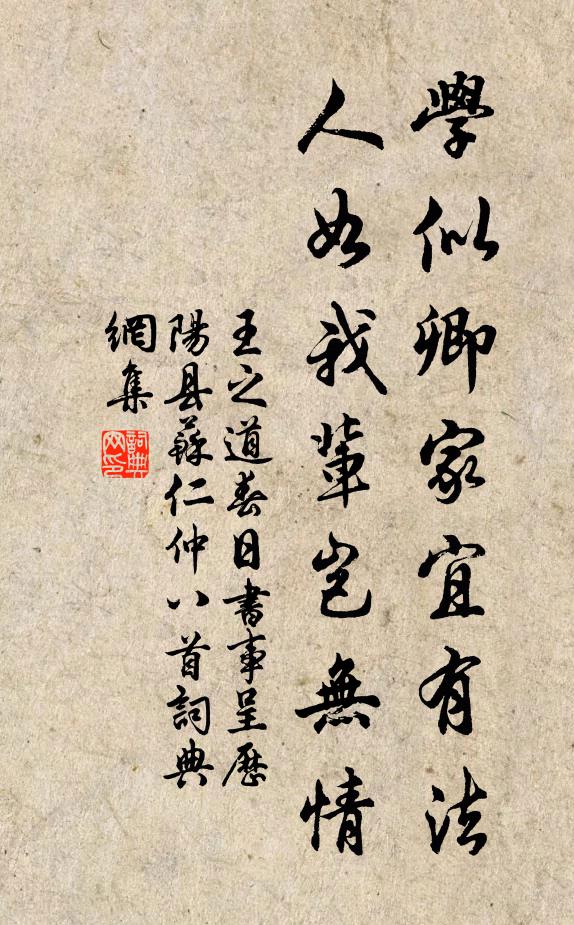 學似卿家宜有法
人如我輩豈無情
王之道春日書事呈歷
陽县蘇仁仲八首詞典
網集
詞典
网印